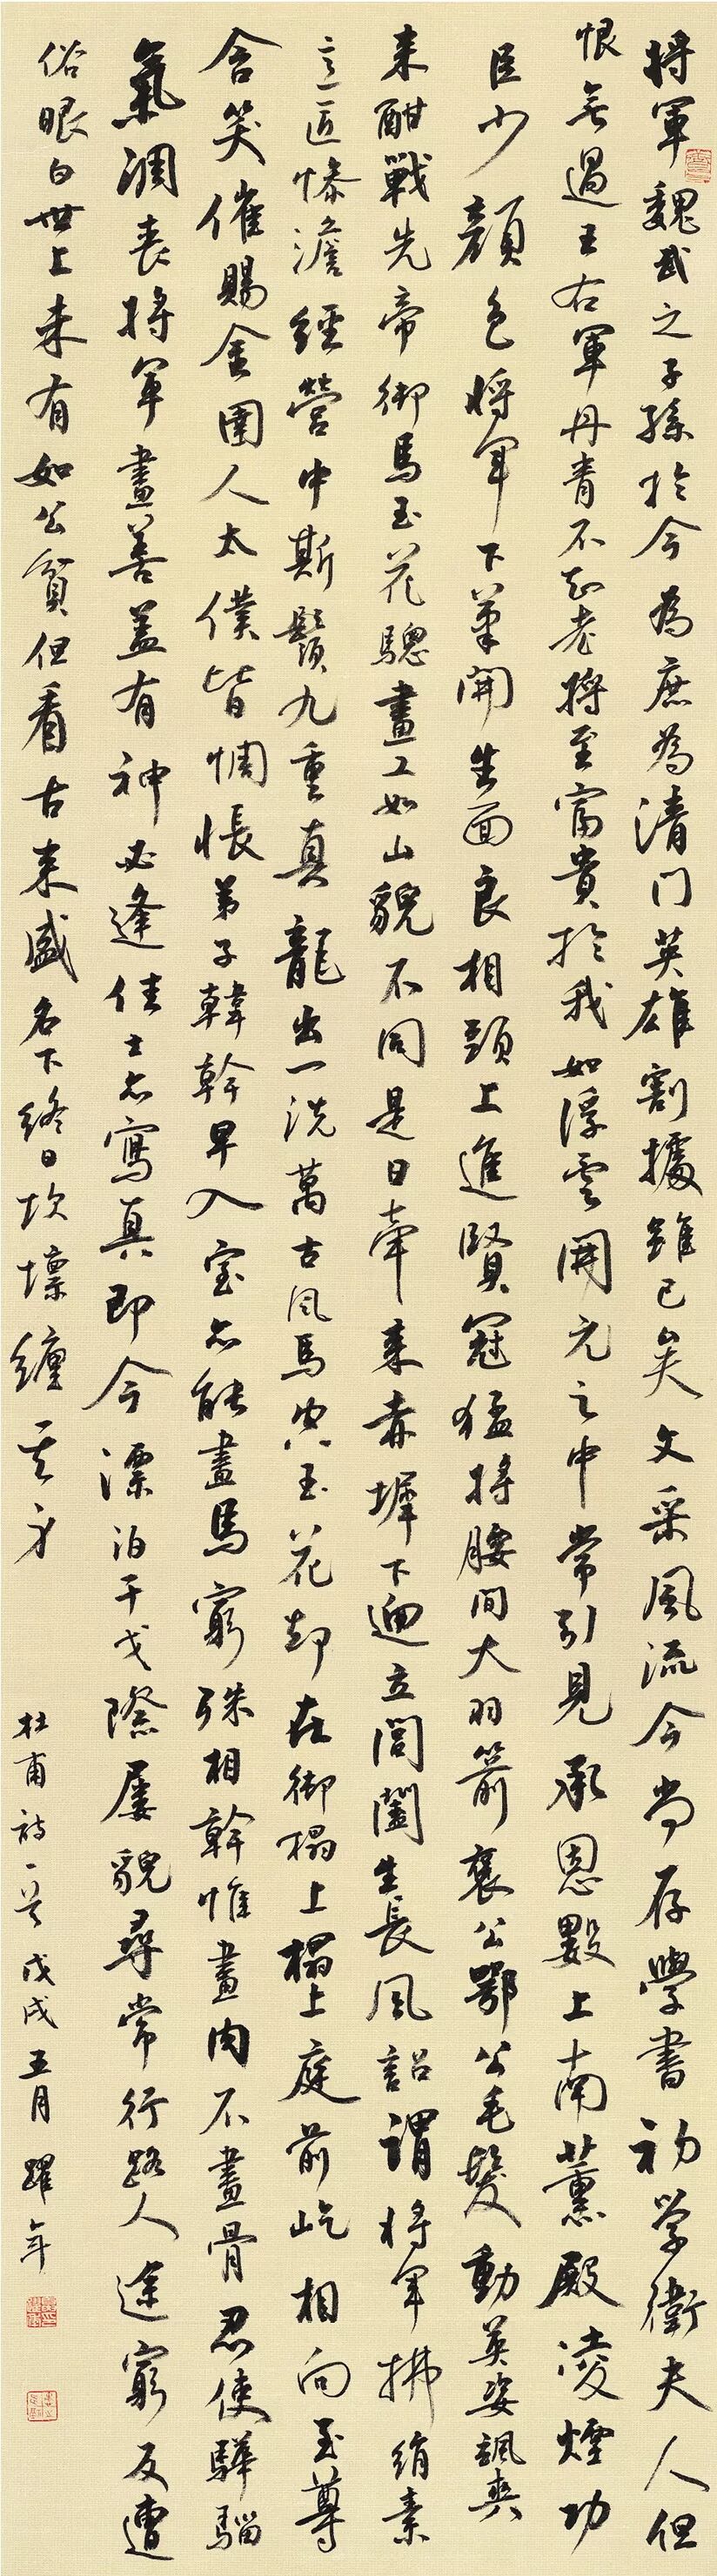 將軍魏武之子孫於今為庶為清門英雄割據雖已矣文采風流今尚存學書初學衛夫人但
恨無過王右軍丹青不知老將至富貴於我如浮雲開元之中常引見承恩數上南薰殿淩煙功
臣少顏色將軍下筆開生面良相頭上進賢冠猛將腰間大羽箭褒公鄂公毛髮動英姿颯爽
来酣戰先帝御馬玉花驄畫工如山貌不同是日牽来赤墀下迥立閶闔生長風詔謂將軍拂絹素
意匠慘澹經營中斯須九重真龍出一洗萬古凡馬空玉花却在御榻上榻上庭前屹相向至尊
含笑催賜金圉人太僕皆惆悵弟子韓幹早入室亦能畫馬窮殊相幹惟畫肉不畫骨忍使驊騮
氣凋喪將軍畫善蓋有神必逢佳士亦寫真即今漂泊干戈際屢貌尋常行路人途窮反遭
俗眼白世上未有如公貧但看古来盛名下終日坎壈纏其身
杜甫詩一首戊戌五月躍年